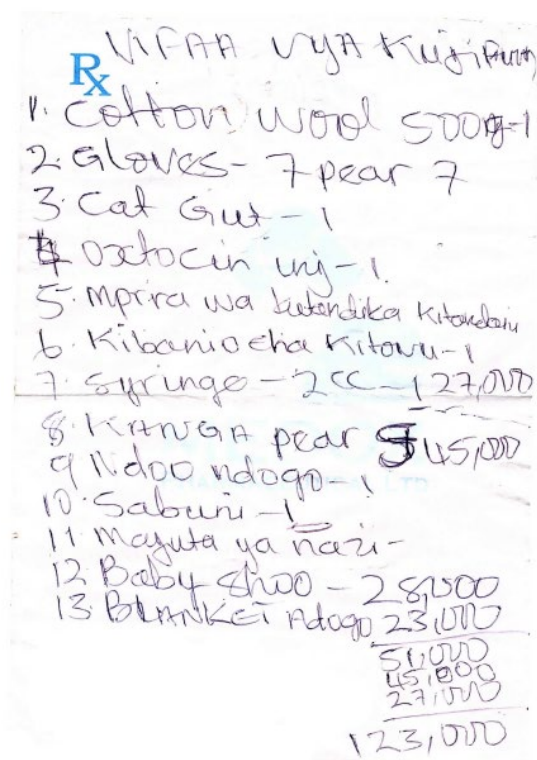 Rx VIFAA VYA Kujifun
1. Cotton wool 500g-1
2. Gloves- 7 pear 7
3. Cat Gut - 1
4 Oxtocin inj-1.
5. Mprira wa kutandika Kitandani
6. Kibanio cha Kitovu-1
7. Syringe - 2cc - 1 27,000
8. KANGA pear 5 45,000
9 Ndoo ndogo-1
LTD
10 Sabuni - 1
11 Mafuta ya nazi-
12 Baby shoo - 28,000
13. BLANKET ndogo 23,000
51,000
45,000
27,000
123,000